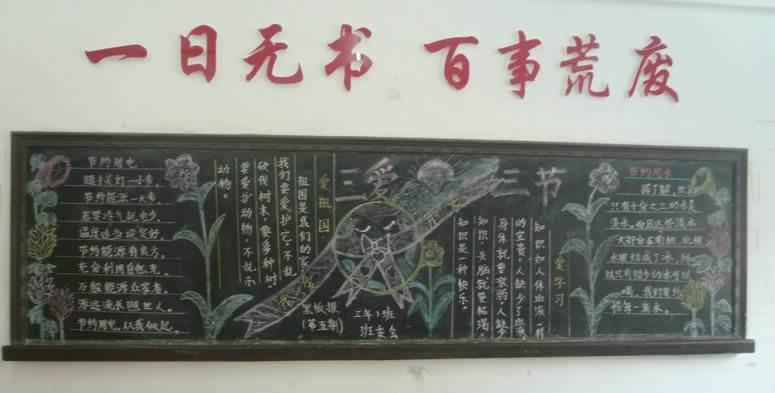 一日无书 百事荒废
节约用电
随手关灯一小步，
节约能源一大步。
若要冷气耗电少，
温度适当设定好。
节约能源有良方，
充分利用自然光。
万般能源众客来，
源远流长照世人。
节约用电，从我做起。
三爱
三节
爱祖国
祖国是我们的家，
我们要爱护它，不乱
砍伐树木，要多种树。
要爱护动物，不乱杀
动物。
黑板报
(第五期)
三年1班
班委会
爱学习
知识如人体血液一样
的宝贵。人缺少了血液，
身体就要衰弱。人缺少
知识，头脑就要枯竭。
知识是一种快乐。
节约用水
据了解，世界
只有十分之三的水是
淡水，而且这些淡水
大部分在南极、北极
水被结成了冰，所
以只有很少的水可以
喝，我们要珍
惜每一滴水。